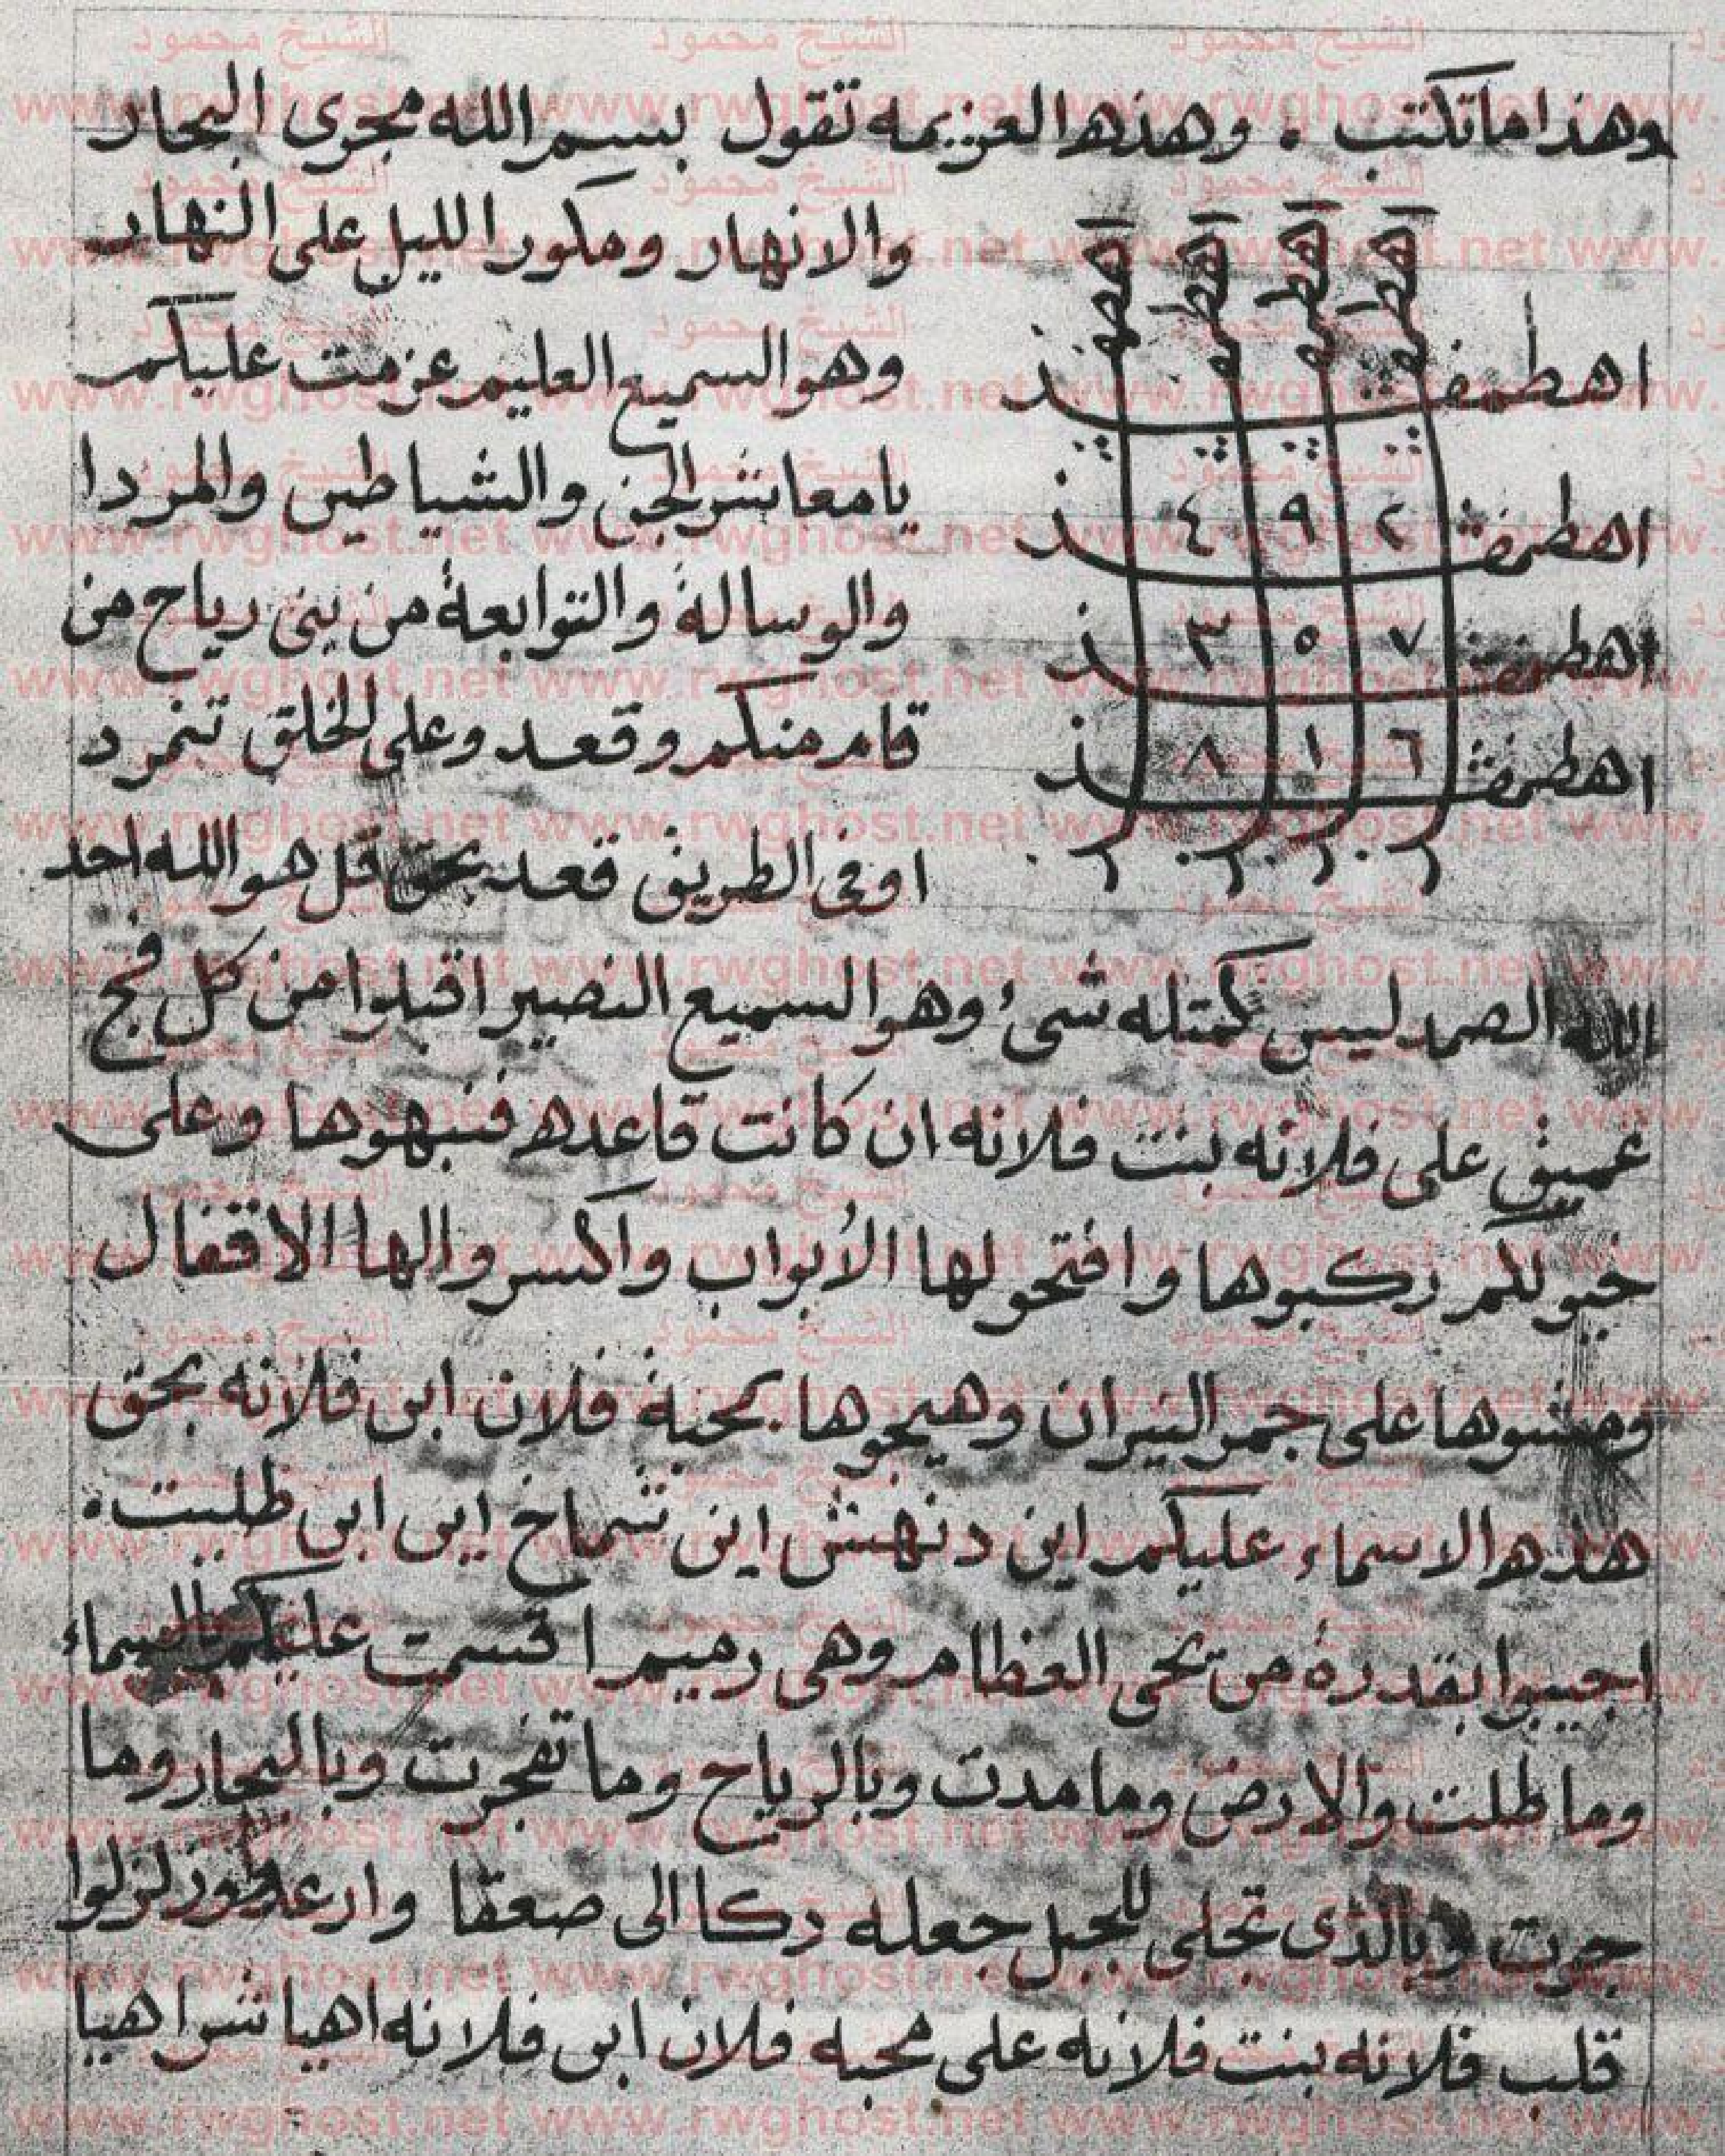 وهذا ما تكتب . وهذه العزيمه تقول بسم الله مجرى البحار
والانهار ومكور الليل على النهار
وهو السميع العليم عزمت عليكم
يا معاشر الجن والشياطين والمردا
والوسالة والتوابعة من بنى رياح من
قام منكم وقعد وعلى الخلق تنمرد
او فى الطريق قعد بحق قل هو الله احد
اهطمفشذ
اهطمفشذ
٤ ٩ ٢
اهطمفشذ
٣ ٥ ٧
اهطمفشذ
٨ ١ ٦
الله الصمد ليس كمتله شئ وهو السميع النصير اقبلوا من كل فج
عميق على فلانه بنت فلانه ان كانت قاعده فنبهوها وعلى
خيولكم ركبوها وافتحو لها الأبواب واكسروا لها الاقفال
ومشوها على جمر النيران وهيجوها بمحبة فلان ابن فلانه بحق
هذه الاسماء عليكم اين دنهش اين شماخ اين ابن طليت .
اجيبوا بقدرة من يحى العظام وهى رميم اقسمت عليكم بالسماء
وما ظلت والارض وما مدت وبالرياح وما تفجرت وبالبحار وما
جرت وبالذى تجلى للجبل جعله دكا الى صعقا وارعدو وزلزلوا
قلب فلانه بنت فلانه على محبه فلان ابن فلانه اهيا شراهيا
الشيخ محمود
www.rwghost.net